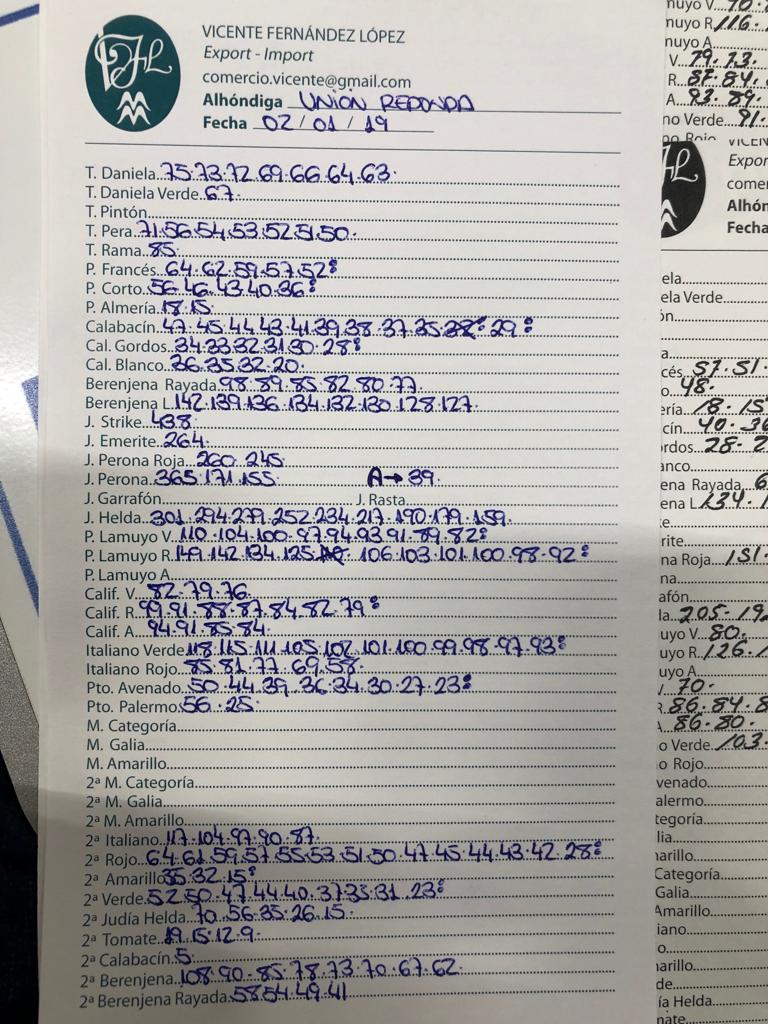 FHL
VICENTE FERNÁNDEZ LÓPEZ
Export - Import
comercio.vicente@gmail.com
Alhóndiga UNION REDONDA
Fecha 02 / 01 / 19
T. Daniela 75.73.72.69.66.64.63.
T. Daniela Verde 67.
T. Pintón
T. Pera 71.56.54.53.52.51.50.
T. Rama 85.
P. Francés 64.62.59.57.52
P. Corto 56.46.43.40.36
P. Almería 18.15.
Calabacín 47.45.44.43.41.39.38.37.35. 29
Cal. Gordos 34.33.32.31.30.28
Cal. Blanco 36.35.32.20.
Berenjena Rayada 98.89.85.82.80.77.
Berenjena L 142.139.136.134.132.130.128.127.
J. Strike 438.
J. Emerite 264.
J. Perona Roja 260.245.
J. Perona 365.171.155. A→39.
J. Garrafón J. Rasta
J. Helda 301.294.279.252.234.217.190.179.159.
P. Lamuyo V. 110.104.100.97.94.93.91.89.82
P. Lamuyo R. 149.142.134.125. 106.103.101.100.98.92
P. Lamuyo A
Calif. V. 82.79.76.
Calif. R. 99.91.88.87.84.82.79
Calif. A. 94.91.85.84.
Italiano Verde 118.115.111.105.102.101.100.99.98.97.93
Italiano Rojo 85.81.77.69.58.
Pto. Avenado 50.44.39.36.34.30.27.23
Pto. Palermo 56.25.
M. Categoría
M. Galia
M. Amarillo
2ª M. Categoría
2ª M. Galia
2ª M. Amarillo
2ª Italiano 117.104.97.90.87.
2ª Rojo 64.61.59.57.55.53.51.50.47.45.44.43.42.28
2ª Amarillo 35.32.15
2ª Verde 52.50.47.44.40.37.35.31.23
2ª Judía Helda 70.56.35.26.15.
2ª Tomate 19.15.12.9.
2ª Calabacín 5.
2ª Berenjena 108.90.85.78.73.70.67.62.
2ª Berenjena Rayada 58.54.49.41.
muyo V.
muyo R. 116.
muyo A
V. 79.73.
R. 87.84.
A. 93.89.
no Verde 91.
no Rojo
VICEN
Expor
comer
Alhón
Fecha
ela
ela Verde
ón
a
cés 57.51.
o 48.
ería 18.15
cín 40.36
rdos 28.2
anco
ena Rayada 6
ena L 134.1
e
rite
na Roja 151.
na
afón
la 205.19
uyo V. 80.
uyo R. 126.1
uyo A
V 70.
R. 86.84.8
A. 86.80.
o Verde 103.
o Rojo
venado
alermo
tegoría
lia
arillo
Categoría
Galia
Amarillo
iano
o
arillo
de
ía Helda
nate